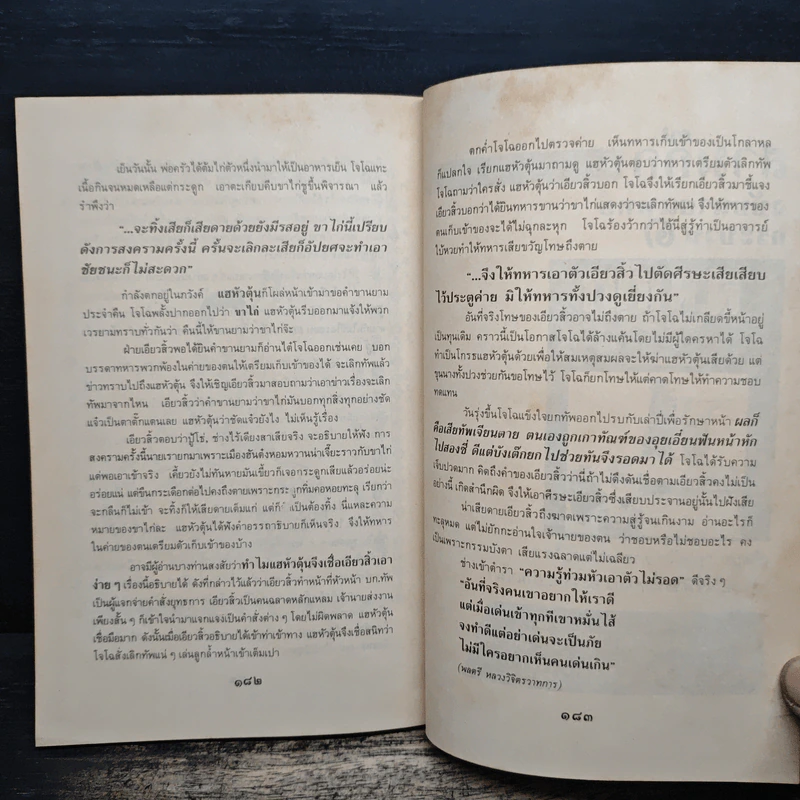 เย็นวันนั้น พ่อครัวได้ต้มไก่ตัวหนึ่งนำมาให้เป็นอาหารเย็น โจโฉแทะ
เนื้อกินจนหมดเหลือแต่กระดูก เอาตะเกียบคีบขาไก่ชูขึ้นพิจารณา แล้ว
รำพึงว่า
"...จะทิ้งเสียก็เสียดายด้วยยังมีรสอยู่ ขาไก่นี้เปรียบ
ดังการสงครามครั้งนี้ ครั้นจะเลิกละเสียก็อัปยศจะทำเอา
ชัยชนะก็ไม่สะดวก"
กำลังตกอยู่ในภวังค์ แฮหัวตุ้นก็โผล่หน้าเข้ามาขอคำขานยาม
ประจำคืน โจโฉพลั้งปากออกไปว่า ขาไก่ แฮหัวตุ้นรีบออกมาแจ้งให้พวก
เวรยามทราบทั่วกันว่า คืนนี้ให้ขานยามว่าขาไก่จ๊ะ
ฝ่ายเอียวสิ้วพอได้ยินคำขานยามก็อ่านไต๋โจโฉออกเช่นเคย บอก
บรรดาทหารพวกพ้องในค่ายของตนให้เตรียมเก็บเข้าของได้ จะเลิกทัพแล้ว
ข่าวทราบไปถึงแฮหัวตุ้น จึงให้เชิญเอียวสิ้วมาสอบถามว่าเอาข่าวเรื่องจะเลิก
ทัพมาจากไหน เอียวสิ้วว่าคำขานยามว่าขาไก่มันบอกทุกสิ่งทุกอย่างชัด
แจ้งเป็นตาตั๊กแตนเลย แฮหัวตุ้นว่าชัดแจ้งยังไง ไม่เห็นรู้เรื่อง
เอียวสิ้วตอบว่าปู้โธ่, ช่างไร้เดียงสาเสียจริง จะอธิบายให้ฟัง การ
สงครามครั้งนี้นายเรายกมาเพราะเมืองฮันต๋งหอมหวานน่าเจี๊ยะราวกับขาไก่
แต่พอเอาเข้าจริง เคี้ยวยังไม่ทันหายมันเขี้ยวก็เจอกระดูกเสียแล้วอร่อยน่ะ
อร่อยแน่ แต่ขืนกระเดือกต่อไปคงถึงตายเพราะกระดูกทิ่มคอหอยทะลุ เรียกว่า
จะกลืนก็ไม่เข้า จะทิ้งก็ให้เสียดายเต็มแก่ แต่ก็จำเป็นต้องทิ้ง นี่แหละความ
หมายของขาไก่ละ แฮหัวตุ้นได้ฟังคำอรรถาธิบายก็เห็นจริง จึงให้ทหาร
ในค่ายของตนเตรียมตัวเก็บเข้าของบ้าง
อาจมีผู้อ่านบางท่านสงสัยว่า ทำไมแฮหัวตุ้นจึงเชื่อเอียวสิ้วเอา
ง่าย ๆ เรื่องนี้อธิบายได้ ดังที่กล่าวไว้แล้วว่าเอียวสิ้วทำหน้าที่หัวหน้า บก.ทัพ
เป็นผู้แจกจ่ายคำสั่งยุทธการ เอียวสิ้วเป็นคนฉลาดหลักแหลม เจ้านายส่งงาน
เพียงสั้น ๆ ก็เข้าใจนำมาแจกแจงเป็นคำสั่งต่าง ๆ โดยไม่ผิดพลาด แฮหัวตุ้น
เชื่อมือมาก ดังนั้นเมื่อเอียวสิ้วอธิบายได้เข้าท่าเข้าทาง แฮหัวตุ้นจึงเชื่อสนิทว่า
โจโฉสั่งเลิกทัพแน่ ๆ เล่นลูกล้ำหน้าเข้าเต็มเปา
๑๘๒
ตกค่ำโจโฉออกไปตรวจค่าย เห็นทหารเก็บเข้าของเป็นโกลาหล
ก็แปลกใจ เรียกแฮหัวตุ้นมาถามดู แฮหัวตุ้นตอบว่าทหารเตรียมตัวเลิกทัพ
โจโฉถามว่าใครสั่ง แฮหัวตุ้นว่าเอียวสิ้วบอก โจโฉจึงให้เรียกเอียวสิ้วมาชี้แจง
เอียวสิ้วบอกว่าได้ยินทหารขานว่าขาไก่แสดงว่าจะเลิกทัพแน่ จึงให้ทหารของ
ตนเก็บเข้าของจะได้ไม่ฉุกละหุก โจโฉร้องว้ากว่าไอ้นี่สู่รู้ทำเป็นอาจารย์
ใบ้หวยทำให้ทหารเสียขวัญโทษถึงตาย
"...จึงให้ทหารเอาตัวเอียวสิ้วไปตัดศีรษะเสียเสียบ
ไว้ประตูค่าย มิให้ทหารทั้งปวงดูเยี่ยงกัน"
อันที่จริงโทษของเอียวสิ้วอาจไม่ถึงตาย ถ้าโจโฉไม่เกลียดขี้หน้าอยู่
เป็นทุนเดิม คราวนี้เป็นโอกาสโจโฉได้ล้างแค้นโดยไม่มีผู้ใดครหาได้ โจโฉ
ทำเป็นโกรธแฮหัวตุ้นด้วยเพื่อให้สมเหตุสมผลจะให้ฆ่าแฮหัวตุ้นเสียด้วย แต่
ขุนนางทั้งปวงช่วยกันขอโทษไว้ โจโฉก็ยกโทษให้แต่คาดโทษให้ทำความชอบ
ทดแทน
วันรุ่งขึ้นโจโฉแข็งใจยกทัพออกไปรบกับเล่าปี่เพื่อรักษาหน้า ผลก็
คือเสียทัพเจียนตาย ตนเองถูกเกาทัณฑ์ของอุยเอี๋ยนฟันหน้าหัก
ไปสองซี่ ดีแต่บังเต๊กยกไปช่วยทันจึงรอดมาได้ โจโฉได้รับความ
เจ็บปวดมาก คิดถึงคำของเอียวสิ้วว่านี่ถ้าไม่ดึงดันเชื่อตามเอียวสิ้วคงไม่เป็น
อย่างนี้ เกิดสำนึกผิด จึงให้เอาศีรษะเอียวสิ้วซึ่งเสียบประจานอยู่นั้นไปฝังเสีย
น่าเสียดายเอียวสิ้วถึงฆาตเพราะความสู่รู้จนเกินงาม อ่านอะไรก็
ทะลุหมด แต่ไม่ยักกะอ่านใจเจ้านายของตน ว่าชอบหรือไม่ชอบอะไร คง
เป็นเพราะกรรมบังตา เสียแรงฉลาดแต่ไม่เฉลียว
ช่างเข้าตำรา "ความรู้ท่วมหัวเอาตัวไม่รอด" ดีจริง ๆ
"อันที่จริงคนเขาอยากให้เราดี
แต่เมื่อเด่นเข้าทุกทีเขาหมั่นไส้
จงทำดีแต่อย่าเด่นจะเป็นภัย
ไม่มีใครอยากเห็นคนเด่นเกิน"
(พลตรี หลวงวิจิตรวาทการ)
๑๘๓